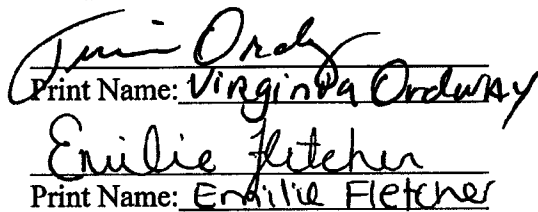 Print Name: Virginia Ordway
Emilie Fletcher
Print Name: Emilie Fletcher